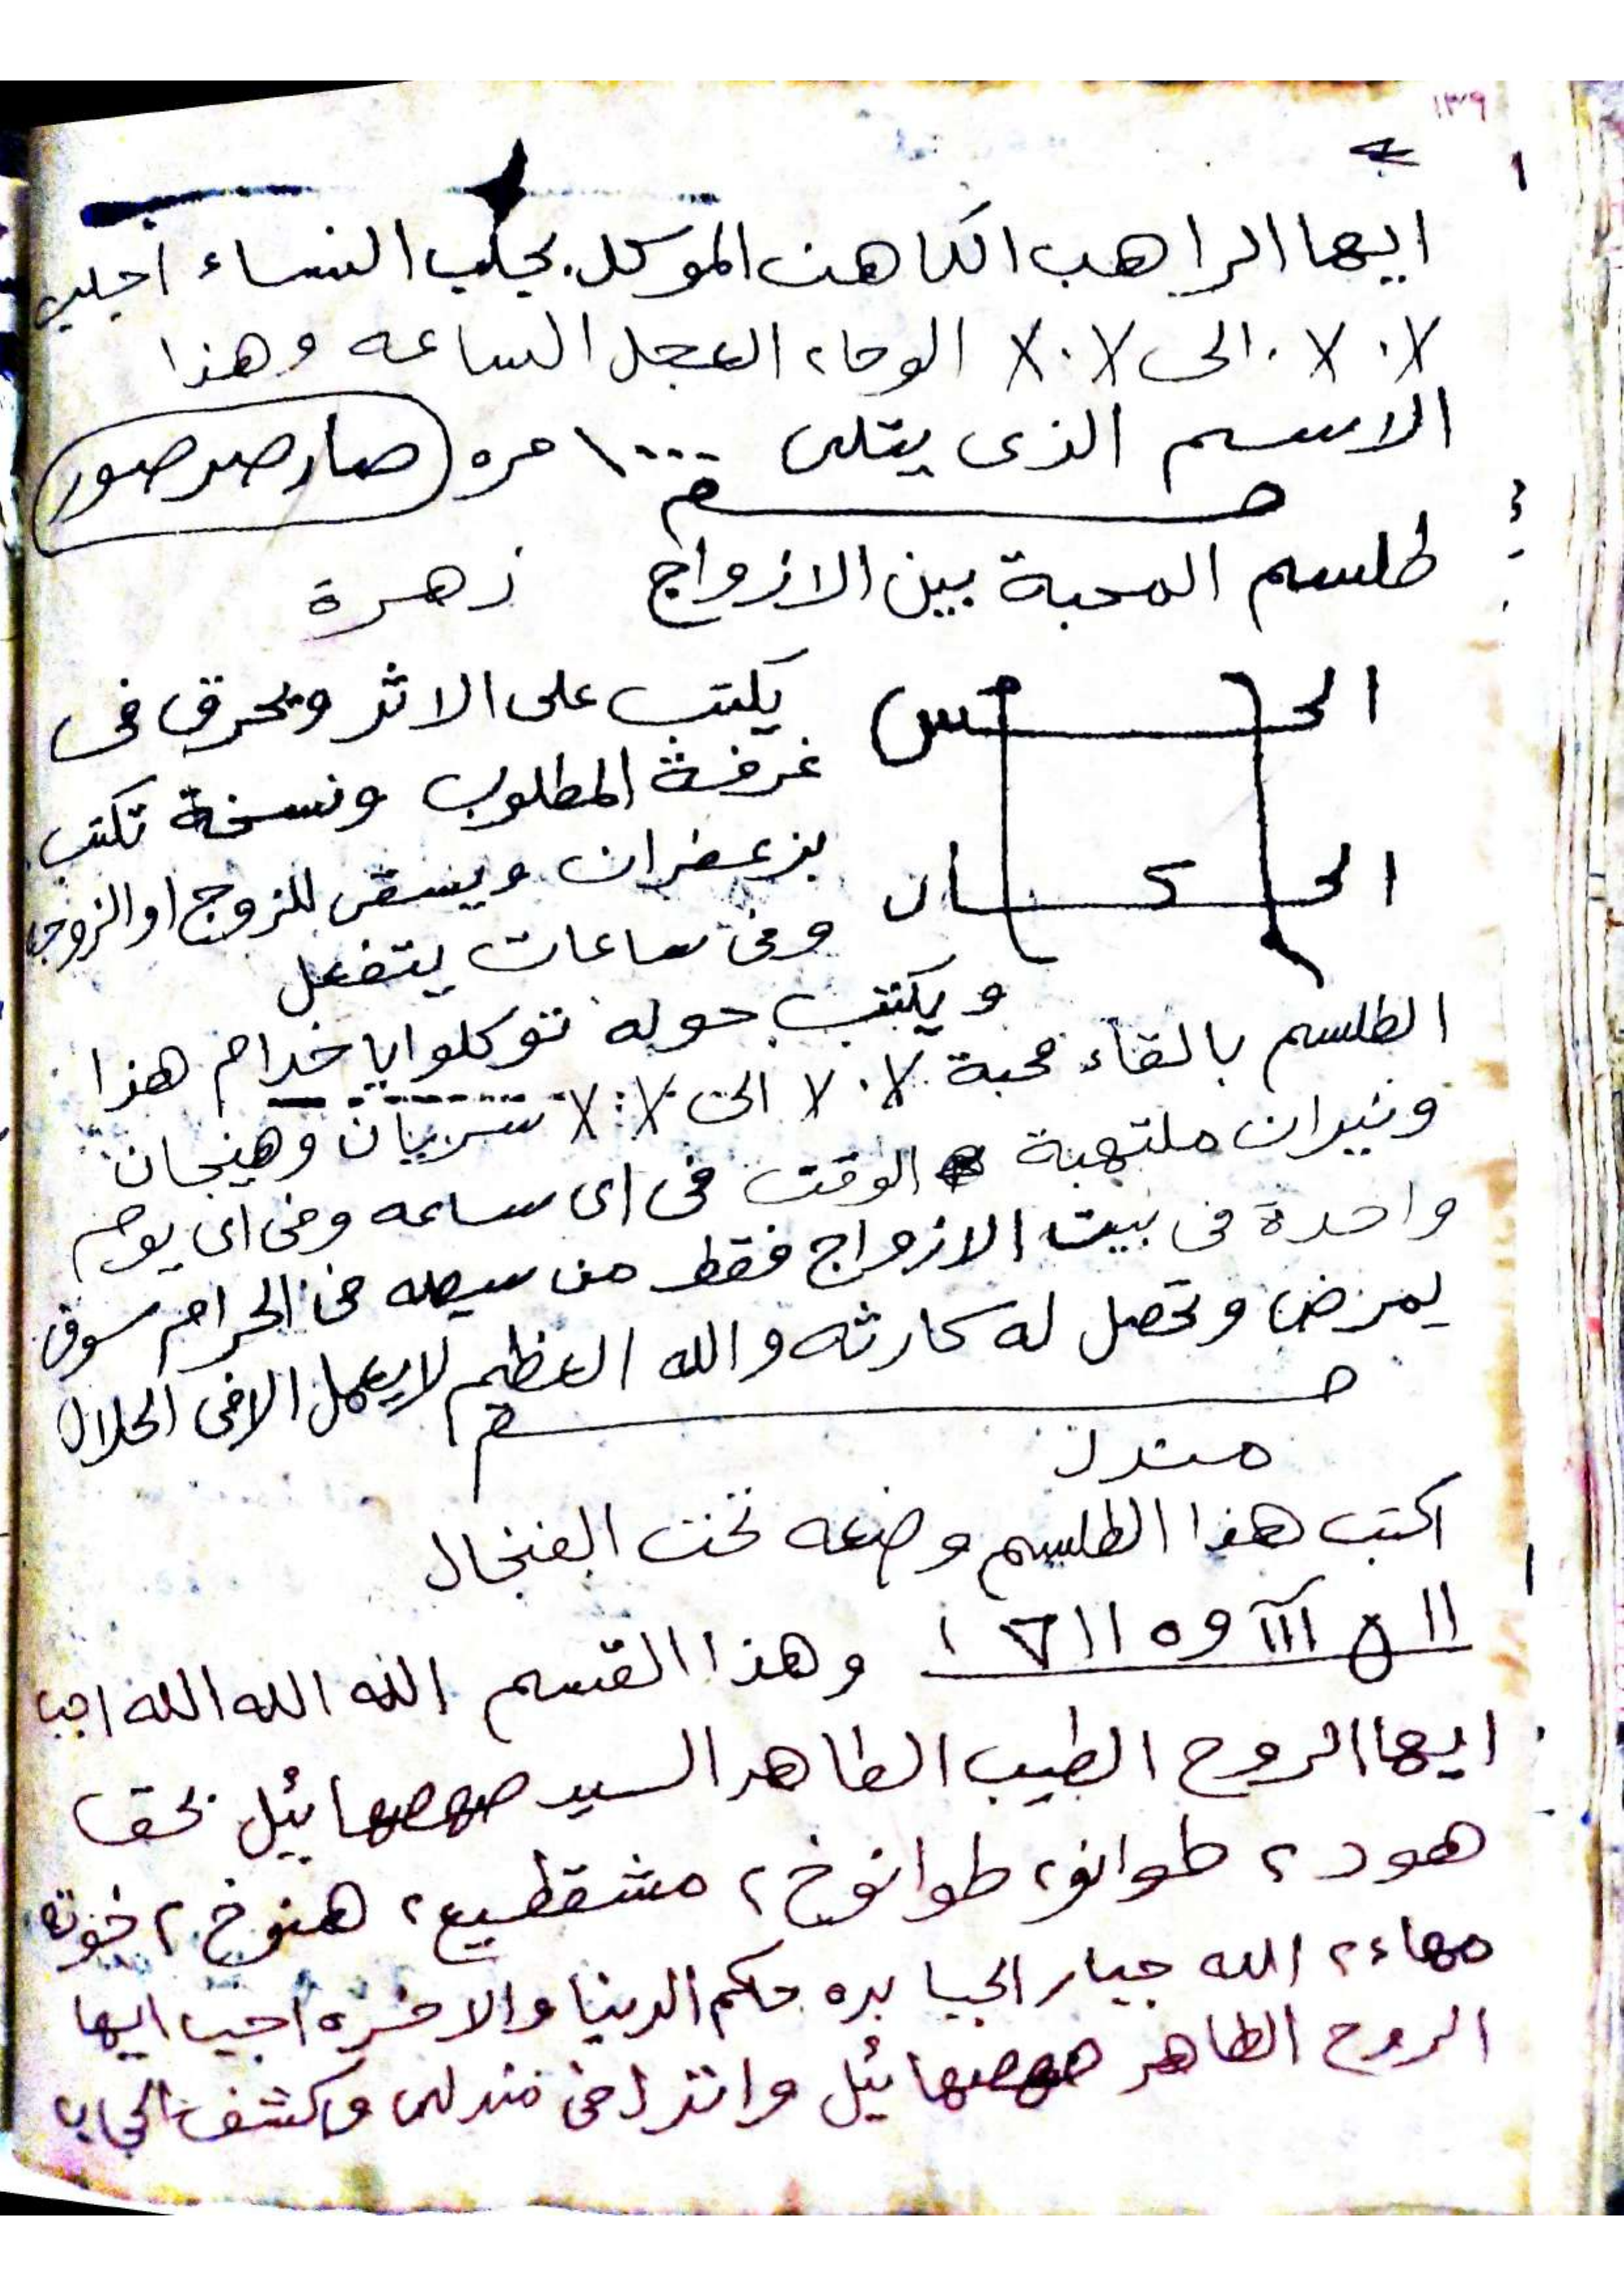 ١٣٩
ايها الراهب الكاهن الموكل بجلب النساء اجلب
X٠X٠ الى X٠X الوحا٢ العجل الساعه وهذا
الاسم الذى يتلى ١٠٠٠ مره (صار صر صور)
طلسم المحبة بين الازواج زهرة
يكتب على الاثر ويحرق فى
غرفة المطلوب ونسخة تكتب
بزعفران ويسقى للزوج او الزوجه
وفى ساعات يتفعل
ويكتب حوله توكلوا يا خدام هذا
الطلسم بالقاء محبة X٠X الى X٠X
ونيران ملتهبة وهيجان
الوقت فى اى ساعه وفى اى يوم
واحدة فى بيت الازواج فقط من فى الحرام سوف
يمرض وتحصل له كارثه والله العظيم لا يعمل الا فى الحلال
مندل
اكتب هذا الطلسم وضعه تحت الفنجال
وهذا القسم الله الله الله اجب
ايها الروح الطيب الطاهر السيد بحق
هود ٢ طوانو٢ طوانوخ٢ مشقطيع٢ هنوخ٢
مهاء٢ الله جبار الجبابره حكم الدينا والاخره اجيب ايها
الروح الطاهر وانزل فى مندلى وكشف